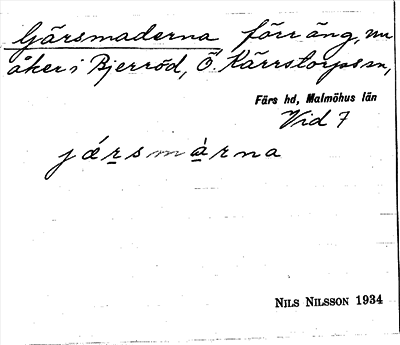 Gärsmaderna förr äng, nu
åker i Bjerröd, Ö. Kärrstorps sn,
Färs hd, Malmöhus län
Vid 7
jæ̀rsmàrna
NILS NILSSON 1934